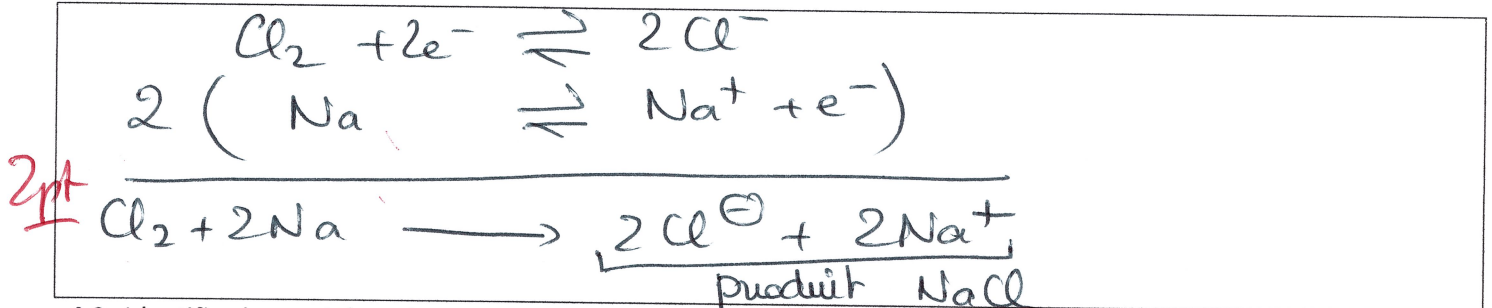 Cl₂ + 2e⁻ ⇌ 2Cl⁻
2 ( Na ⇌ Na⁺ + e⁻)
2pt
Cl₂ + 2Na ⟶ 2Cl⊖ + 2Na⁺
produit NaCl